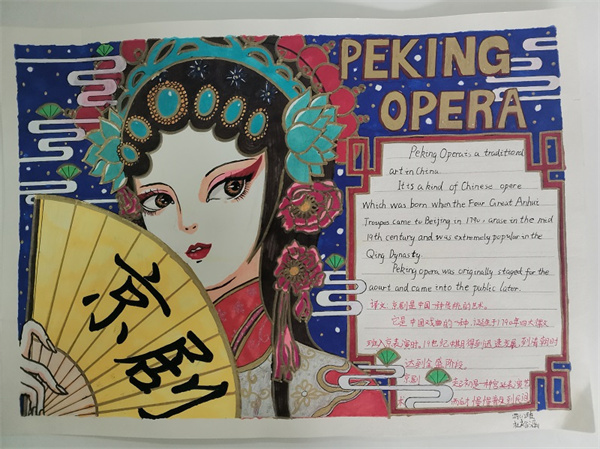 PEKING
OPERA
京剧
Peking Opera is a traditional
art in China
It is a kind of Chinese opera
which was born when the Four Great Anhui
Troupes came to Beijing in 1790, arose in the mid
19th century and was extremely popular in the
Qing Dynasty
Peking opera was originally staged for the
court and came into the public later.
译文：京剧是中国一种传统的艺术。
它是中国戏曲的一种，诞生于1790年四大徽
班入京表演时。19世纪中期得到迅速发展，到清朝时
达到全盛阶段。
京剧 起初是一种宫廷表演艺
术 后才慢慢普及到民间